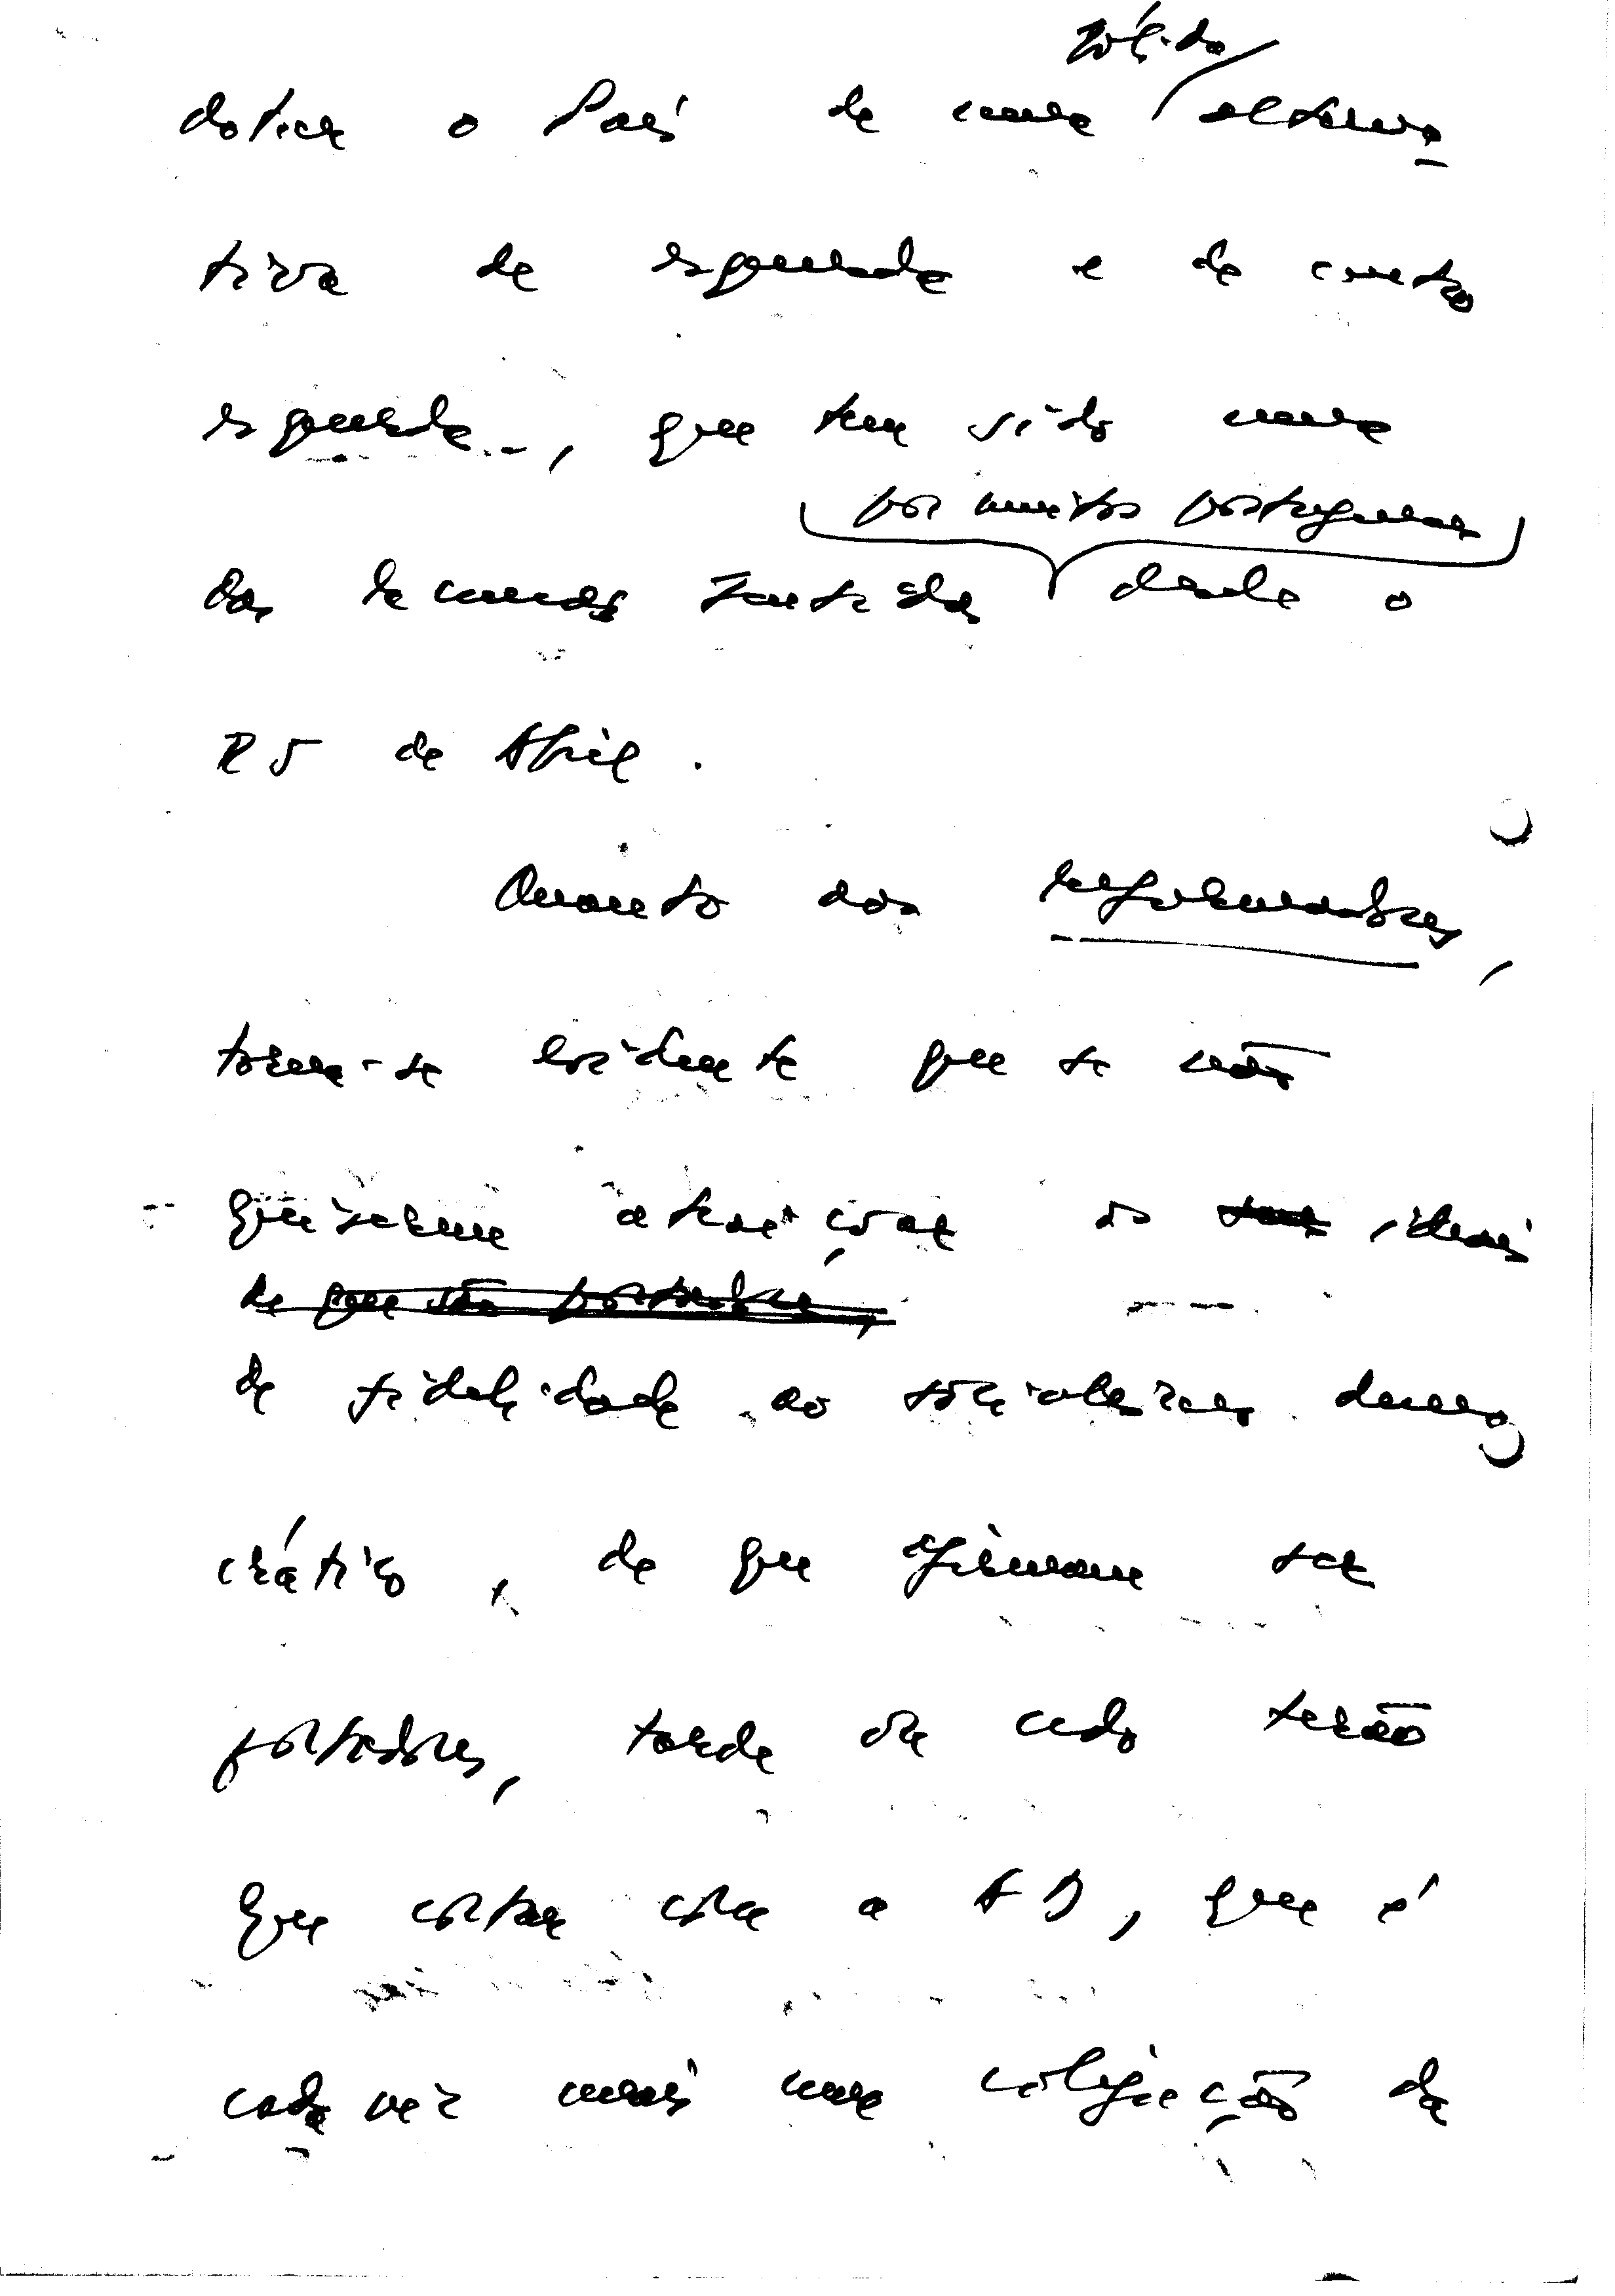 sólida
dotar o País de uma alterna
tiva de esquerda e de centro
esquerda -, que tem sido uma
por muitos portugueses
das demandas sentidas desde o
25 de Abril.
Quanto aos reformadores,
torna-se evidente que se não
quiserem atraiçoar os ideais
de que são portadores,
de fidelidade ao socialismo demo
crático, de que afirmam ser
portadores, tarde ou cedo terão
que cortar com a AD, que é
cada vez mais uma coligação da